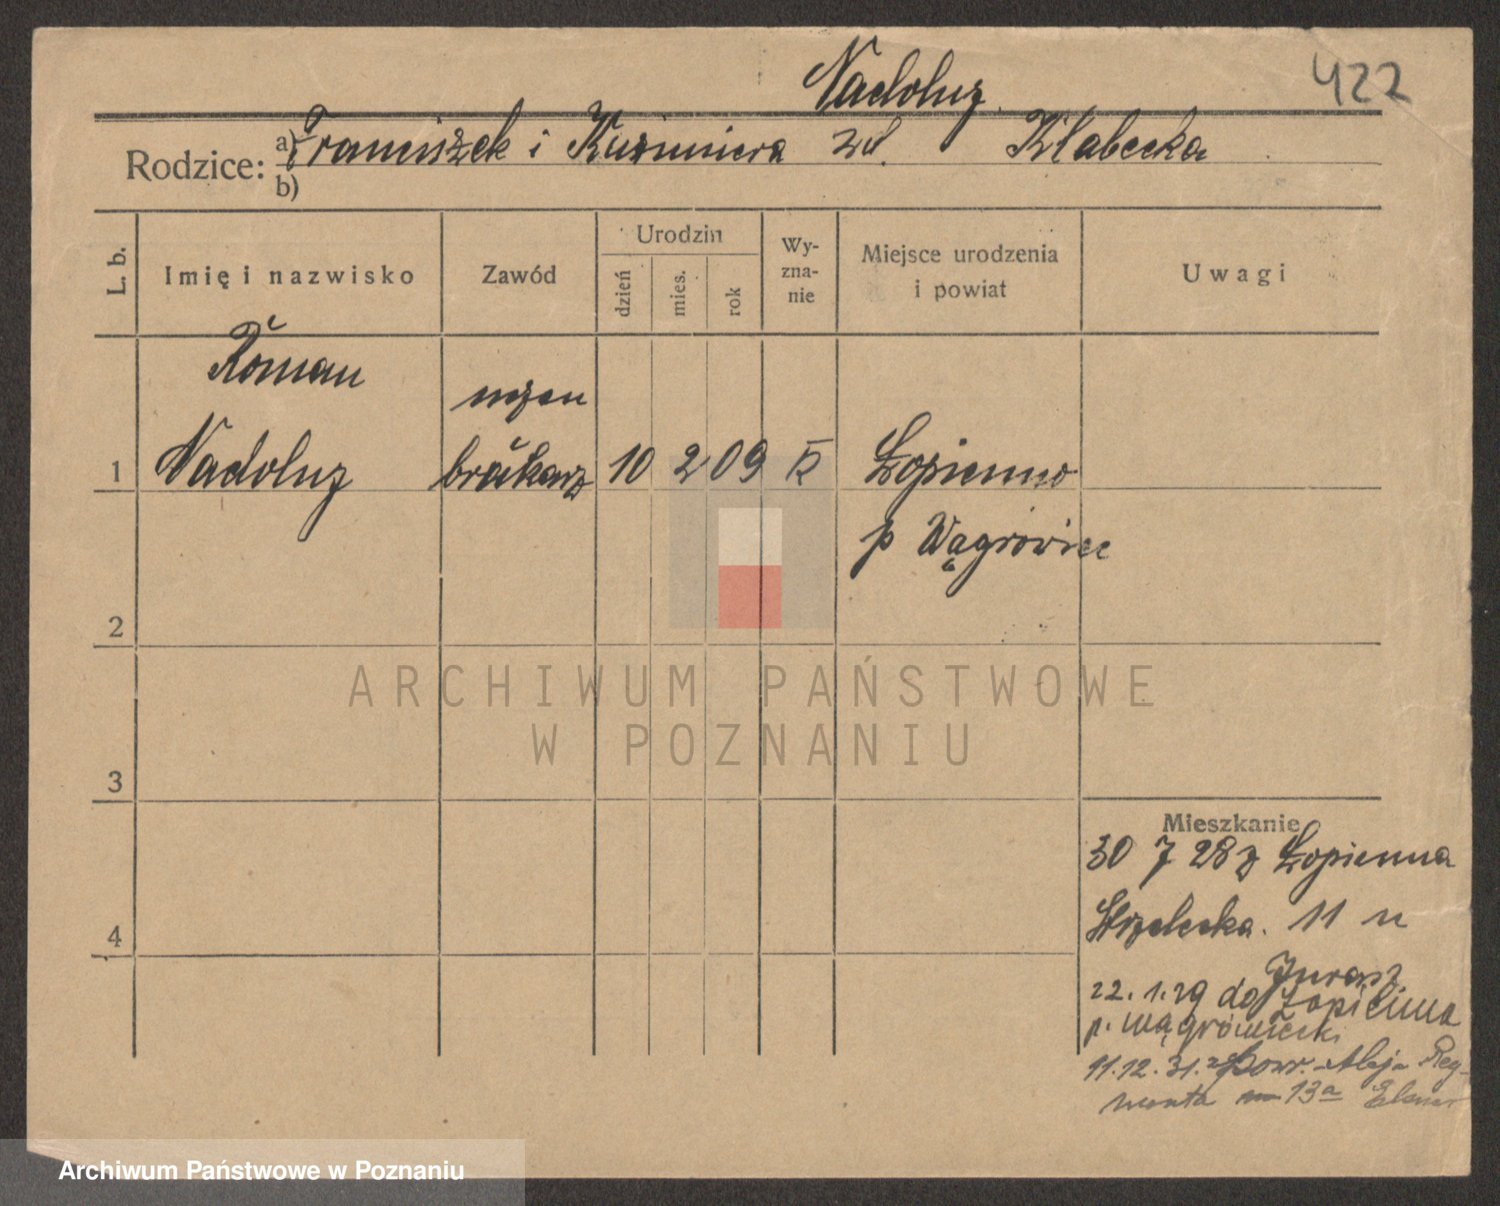 Nadolny
422
Rodzice: a) Franciszek i Kazimiera zd. Kłabecka
b)
L. b.
Imię i nazwisko
Zawód
Urodzin
dzień
mies.
rok
Wy-
zna-
nie
Miejsce urodzenia
i powiat
Uwagi
Roman
uczeń
1 Nadolny brukarz 10 2 09 K Łopienno
p Wągrowiec
2
ARCHIWUM PAŃSTWOWE
W POZNANIU
3
Mieszkanie
30 7 28 z Łopienna
Strzelecka. 11 u
Jurasz
4
22. 1. 29 do Łopienna
p. wągrowiecki
11. 12. 31. z Pow. Aleja Reg-
monta 13a
Archiwum Państwowe w Poznaniu